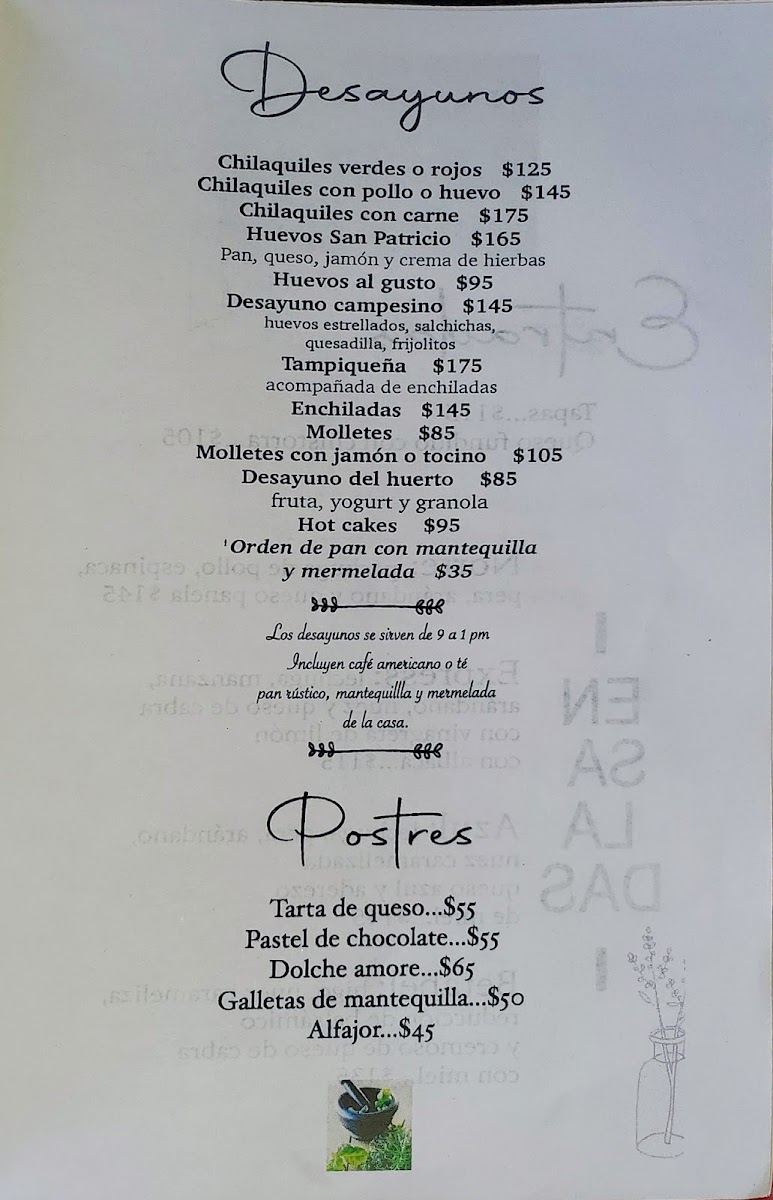 Desayunos
Chilaquiles verdes o rojos $125
Chilaquiles con pollo o huevo $145
Chilaquiles con carne $175
Huevos San Patricio $165
Pan, queso, jamón y crema de hierbas
Huevos al gusto $95
Desayuno campesino $145
huevos estrellados, salchichas,
quesadilla, frijolitos
Tampiqueña $175
acompañada de enchiladas
Enchiladas $145
Molletes $85
Molletes con jamón o tocino $105
Desayuno del huerto $85
fruta, yogurt y granola
Hot cakes $95
'Orden de pan con mantequilla
y mermelada $35
Los desayunos se sirven de 9 a 1 pm
Incluyen café americano o té
pan rústico, mantequillla y mermelada
de la casa.
Postres
Tarta de queso...$55
Pastel de chocolate...$55
Dolche amore...$65
Galletas de mantequilla...$50
Alfajor...$45